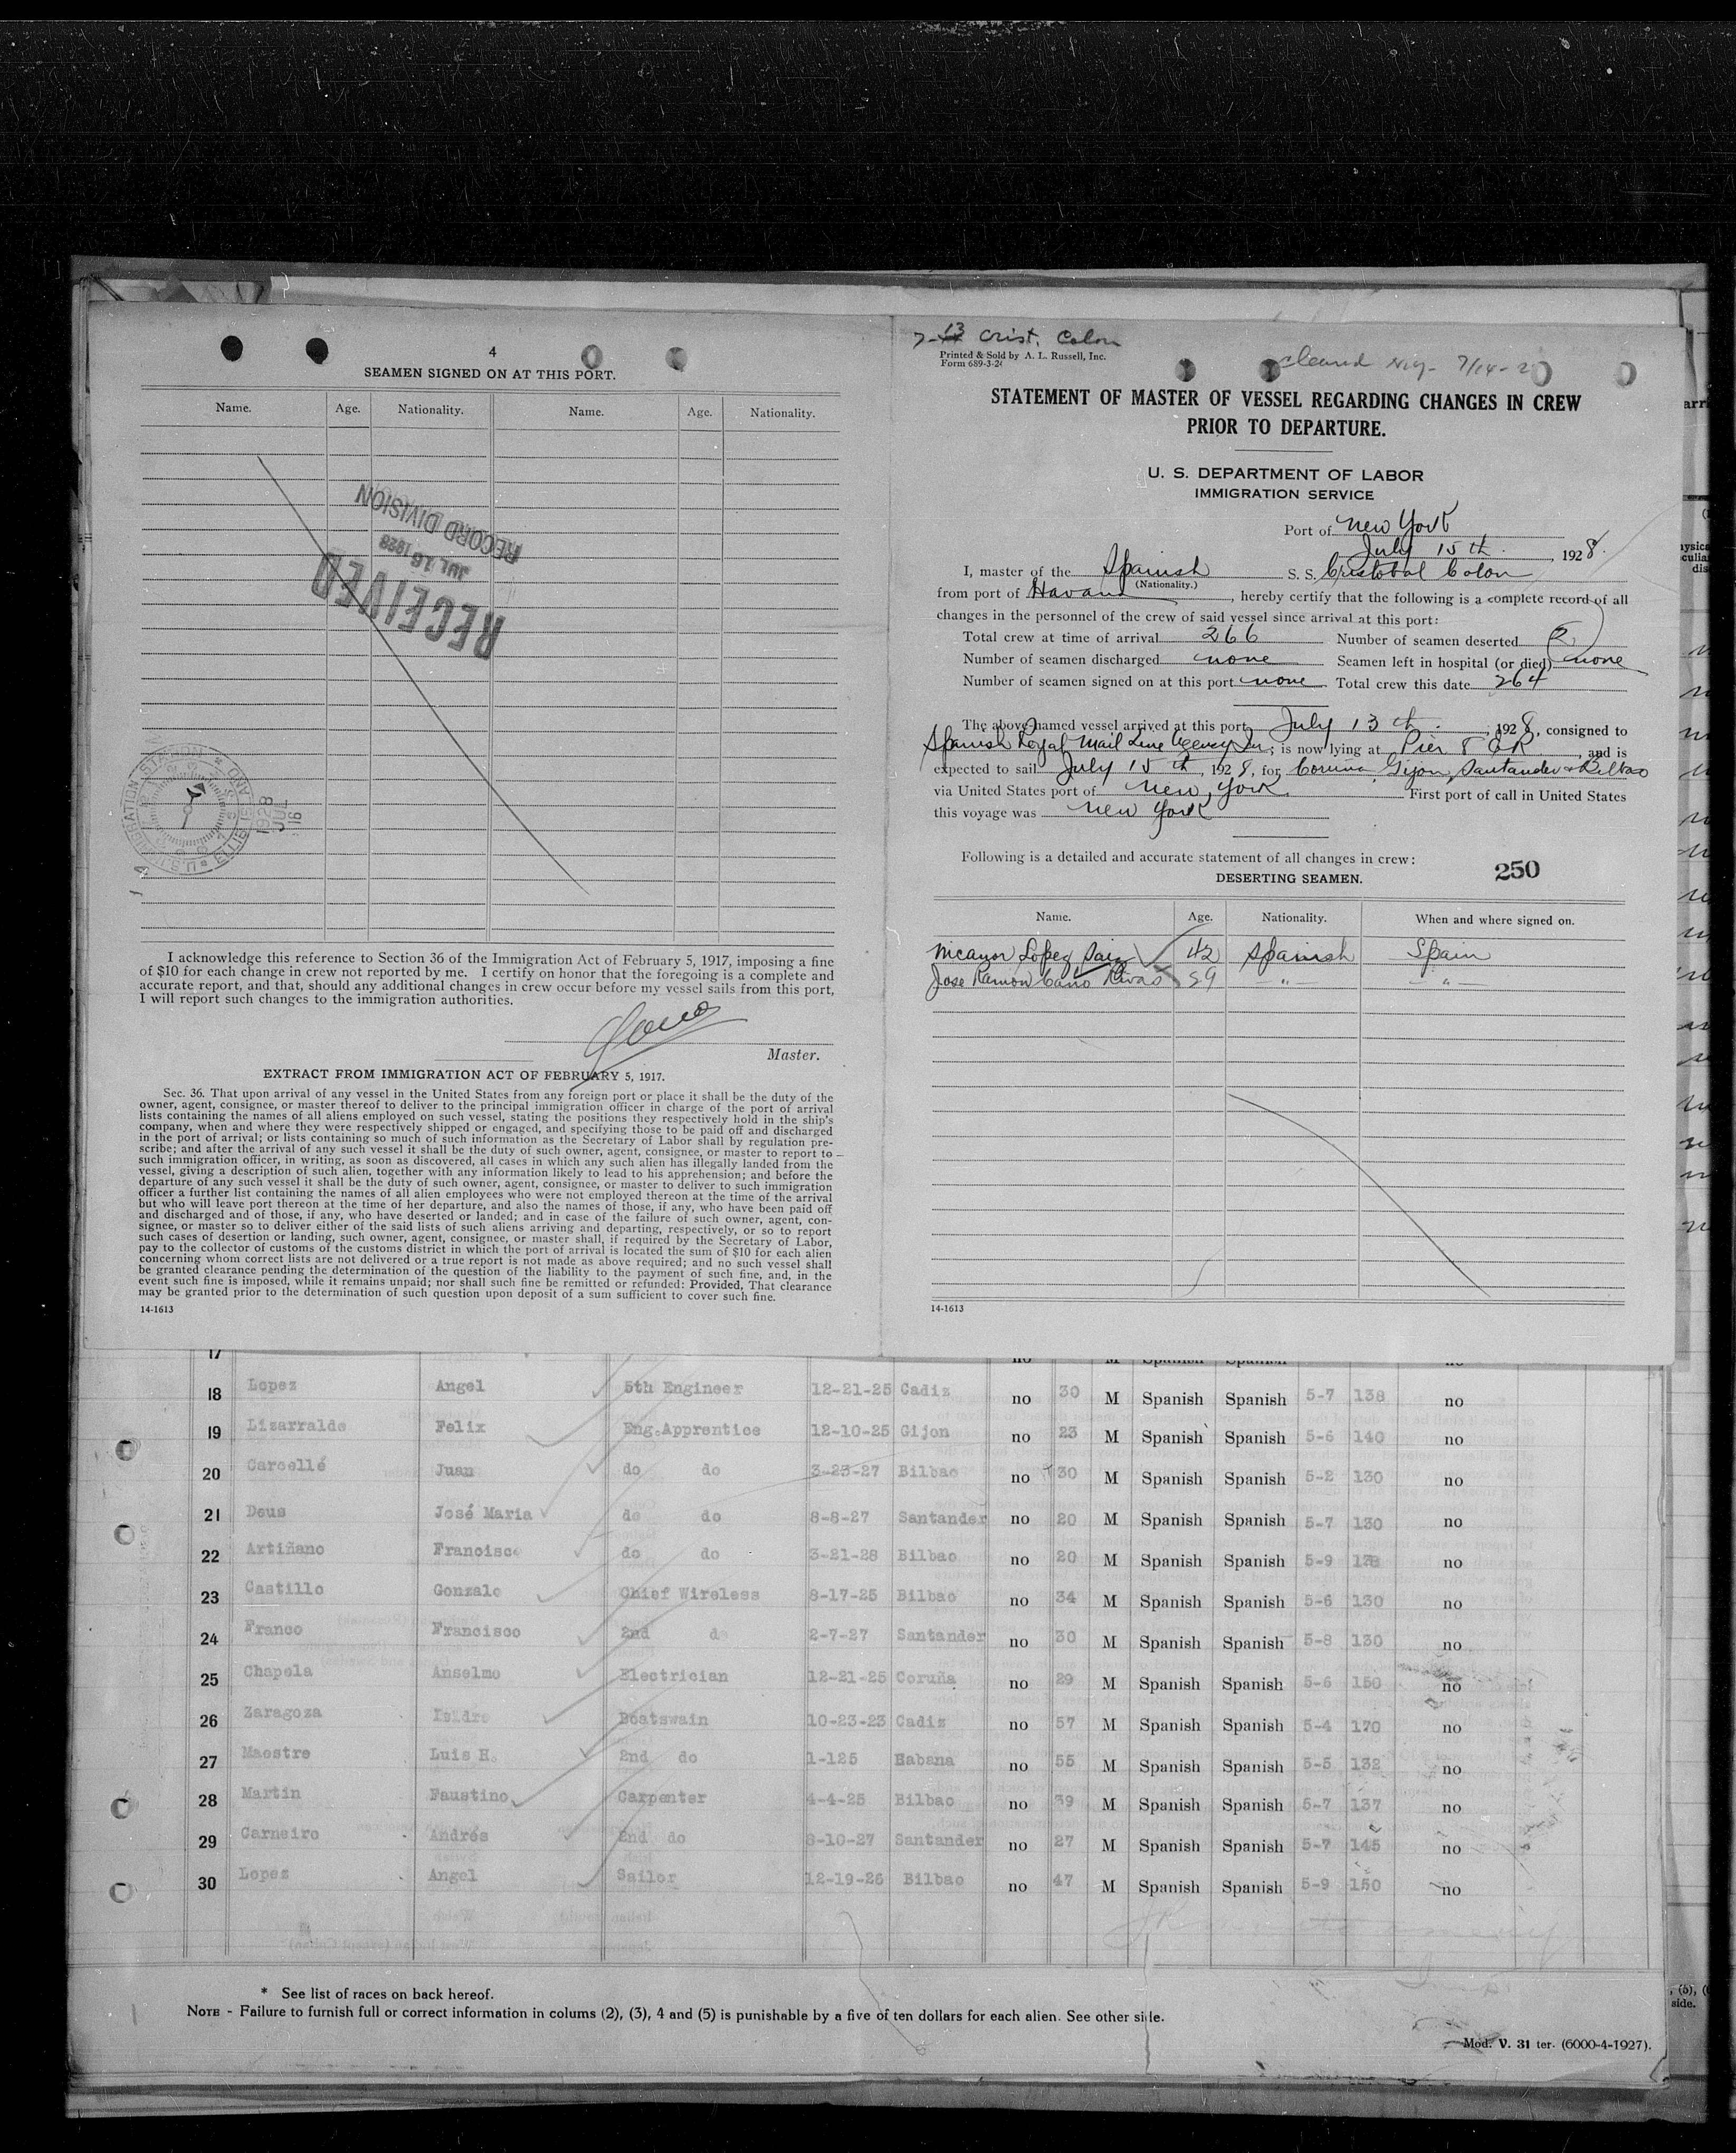 4
SEAMEN SIGNED ON AT THIS PORT.
Name. Age. Nationality. Name. Age. Nationality.
RECEIVED
JUL 16 1928
RECORD DIVISION
1928
JUL
16
I acknowledge this reference to Section 36 of the Immigration Act of February 5, 1917, imposing a fine
of $10 for each change in crew not reported by me. I certify on honor that the foregoing is a complete and
accurate report, and that, should any additional changes in crew occur before my vessel sails from this port,
I will report such changes to the immigration authorities.
Master.
EXTRACT FROM IMMIGRATION ACT OF FEBRUARY 5, 1917.
Sec. 36. That upon arrival of any vessel in the United States from any foreign port or place it shall be the duty of the
owner, agent, consignee, or master thereof to deliver to the principal immigration officer in charge of the port of arrival
lists containing the names of all aliens employed on such vessel, stating the positions they respectively hold in the ship's
company, when and where they were respectively shipped or engaged, and specifying those to be paid off and discharged
in the port of arrival; or lists containing so much of such information as the Secretary of Labor shall by regulation pre-
scribe; and after the arrival of any such vessel it shall be the duty of such owner, agent, consignee, or master to report to
such immigration officer, in writing, as soon as discovered, all cases in which any such alien has illegally landed from the
vessel, giving a description of such alien, together with any information likely to lead to his apprehension; and before the
departure of any such vessel it shall be the duty of such owner, agent, consignee, or master to deliver to such immigration
officer a further list containing the names of all alien employees who were not employed thereon at the time of the arrival
but who will leave port thereon at the time of her departure, and also the names of those, if any, who have been paid off
and discharged and of those, if any, who have deserted or landed; and in case of the failure of such owner, agent, con-
signee, or master so to deliver either of the said lists of such aliens arriving and departing, respectively, or so to report
such cases of desertion or landing, such owner, agent, consignee, or master shall, if required by the Secretary of Labor,
pay to the collector of customs of the customs district in which the port of arrival is located the sum of $10 for each alien
concerning whom correct lists are not delivered or a true report is not made as above required; and no such vessel shall
be granted clearance pending the determination of the question of the liability to the payment of such fine, and, in the
event such fine is imposed, while it remains unpaid; nor shall such fine be remitted or refunded: Provided, That clearance
may be granted prior to the determination of such question upon deposit of a sum sufficient to cover such fine.
14-1613
7-13 Crist. Colon
Printed & Sold by A. L. Russell, Inc.
Form 689-3-2
cleared 7/14-2
STATEMENT OF MASTER OF VESSEL REGARDING CHANGES IN CREW
PRIOR TO DEPARTURE.
U. S. DEPARTMENT OF LABOR
IMMIGRATION SERVICE
Port of New York
July 15th, 1928.
I, master of the Spanish S. S. Cristobal Colon
(Nationality.)
from port of Havana, hereby certify that the following is a complete record of all
changes in the personnel of the crew of said vessel since arrival at this port:
Total crew at time of arrival 266 Number of seamen deserted 2
Number of seamen discharged none Seamen left in hospital (or died) none
Number of seamen signed on at this port none Total crew this date 264
The above-named vessel arrived at this port July 13th, 1928, consigned to
Spanish Royal Mail Line Agency Inc; is now lying at Pier 8 E R, and is
expected to sail July 15th, 1928, for Coruña, Gijon, Santander & Bilbao
via United States port of New York. First port of call in United States
this voyage was New York
Following is a detailed and accurate statement of all changes in crew:
DESERTING SEAMEN. 250
Name. Age. Nationality. When and where signed on.
Nicanor Lopez Saiz 42 Spanish Spain
Jose Ramon Caño Rivas 29 -"- -"-
14-1613
17 no M Spanish Spanish no
18 Lopez Angel 5th Engineer 12-21-25 Cadiz no 30 M Spanish Spanish 5-7 138 no
19 Lizarralde Felix Eng.Apprentice 12-10-25 Gijon no 23 M Spanish Spanish 5-6 140 no
20 Garcellé Juan do do 3-23-27 Bilbao no 30 M Spanish Spanish 5-2 130 no
21 Deus José Maria do do 8-8-27 Santander no 20 M Spanish Spanish 5-7 130 no
22 Artiñano Francisco do do 3-21-28 Bilbao no 20 M Spanish Spanish 5-9 no
23 Castillo Gonzalo Chief Wireless 8-17-25 Bilbao no 34 M Spanish Spanish 5-6 130 no
24 Franco Francisco 2nd do 2-7-27 Santander no 30 M Spanish Spanish 5-8 130 no
25 Chapela Anselmo Electrician 12-21-25 Coruña no 29 M Spanish Spanish 5-6 150 no
26 Zaragoza Isidro Boatswain 10-23-23 Cadiz no 57 M Spanish Spanish 5-4 170 no
27 Maestre Luis H. 2nd do 1-125 Habana no 55 M Spanish Spanish 5-5 132 no
28 Martin Faustino Carpenter 4-4-25 Bilbao no 39 M Spanish Spanish 5-7 137 no
29 Carneiro Andrés 2nd do 8-10-27 Santander no 27 M Spanish Spanish 5-7 145 no
30 Lopez Angel Sailor 12-19-26 Bilbao no 47 M Spanish Spanish 5-9 150 no
* See list of races on back hereof.
NOTE - Failure to furnish full or correct information in colums (2), (3), 4 and (5) is punishable by a five of ten dollars for each alien. See other side.
Mod. V. 31 ter. (6000-4-1927).